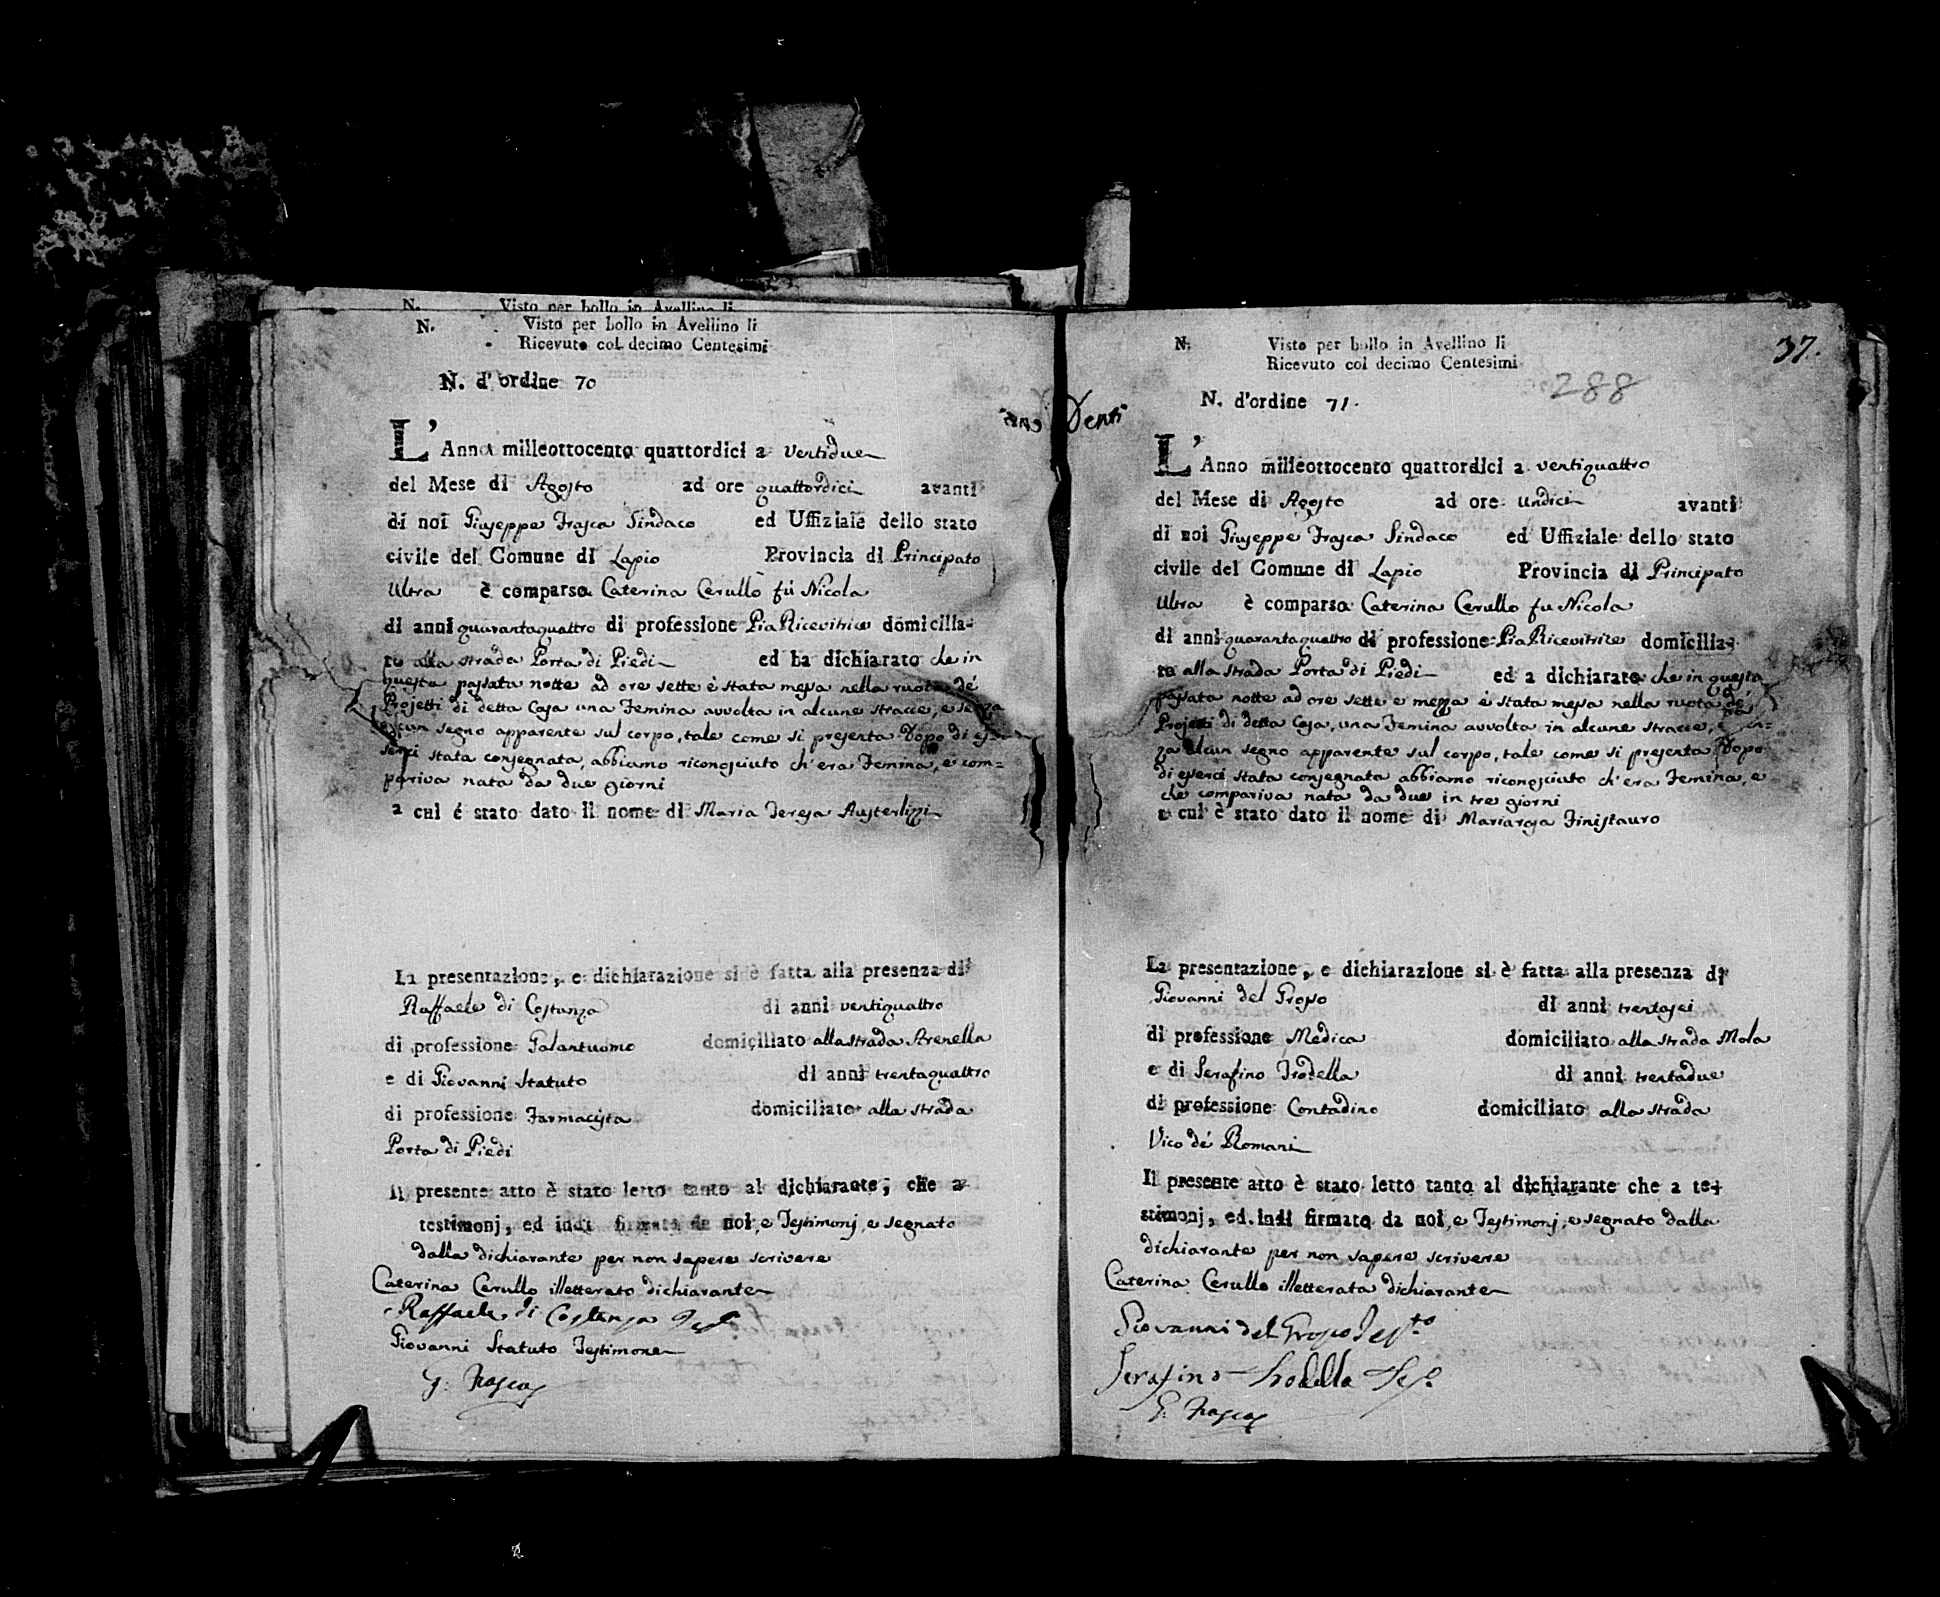 N. Visto per bollo in Avellino li
N. Visto per bollo in Avellino li
Ricevuto col decimo Centesimi
N. d'ordine 70
L'Anno milleottocento quattordici a ventidue
del Mese di Agosto ad ore quattordici avanti
di noi Giuseppe Frasca Sindaco ed Uffiziale dello stato
civile del Comune di Lapio Provincia di Principato
Ultra è comparsa Caterina Cerullo fù Nicola
di anni quarantaquattro di professione Pia Ricevitrice domicilia-
ta alla strada Porta di Piedi ed ha dichiarato che in
questa passata notte ad ore sette è stata messa nella ruota de'
Projetti di detta Casa una Femina avvolta in alcune stracce, e senza
alcun segno apparente sul corpo, tale come si presenta. Dopo di es-
serci stata consegnata, abbiamo riconosciuto ch'era Femina, e com=
pariva nata da due giorni
a cui é stato dato il nome di Maria Teresa Austerlizzi
La presentazione, e dichiarazione si è fatta alla presenza di
Raffaele di Costanza di anni ventiquattro
di professione Galantuomo domiciliato alla strada Strenella
e di Giovanni Statuto di anni trentaquattro
di professione Farmacista domiciliato alla strada
Porta di Piedi
Il presente atto è stato letto tanto al dichiarante, che a
testimonj, ed indi firmato da noi, e Testimonj, e segnato
dalla dichiarante per non sapere scrivere
Caterina Cerullo illetterato dichiarante
Raffaele di Costanza
Giovanni Statuto Testimone
G. Frasca
Denti
37.
N. Visto per bollo in Avellino li
Ricevuto col decimo Centesimi
288
N. d'ordine 71.
L'Anno milleottocento quattordici a ventiquattro
del Mese di Agosto ad ore undici avanti
di noi Giuseppe Frasca Sindaco ed Uffiziale dello stato
civile del Comune di Lapio Provincia di Principato
Ultra è comparsa Caterina Cerullo fu Nicola
di anni quarantaquattro di professione Pia Ricevitrice domicilia-
ta alla strada Porta di Piedi ed a dichiarato che in questa
passata notte ad ore sette e mezza è stata messa nella ruota de'
Projetti di detta Casa, una Femina avvolta in alcune stracce, e sen=
za alcun segno apparente sul corpo, tale come si presenta. Dopo
di esserci stata consegnata abbiamo riconosciuto ch'era Femina, e
che compariva nata da due in tre giorni
a cui è stato dato il nome di Mariarosa Finistauro
La presentazione, e dichiarazione si è fatta alla presenza di
Giovanni del Grosso di anni trentasei
di professione Medica domiciliato alla strada Mola
e di Serafino Trodella di anni trentadue
di professione Contadino domiciliato alla strada
Vico de' Romani
Il presente atto è stato letto tanto al dichiarante che a te-
stimonj, ed indi firmato da noi, e Testimonj, e segnato dalla
dichiarante per non sapere scrivere
Caterina Cerullo illetterata dichiarante
Giovanni del Grosso Testo
Serafino Trodella
G. Frasca